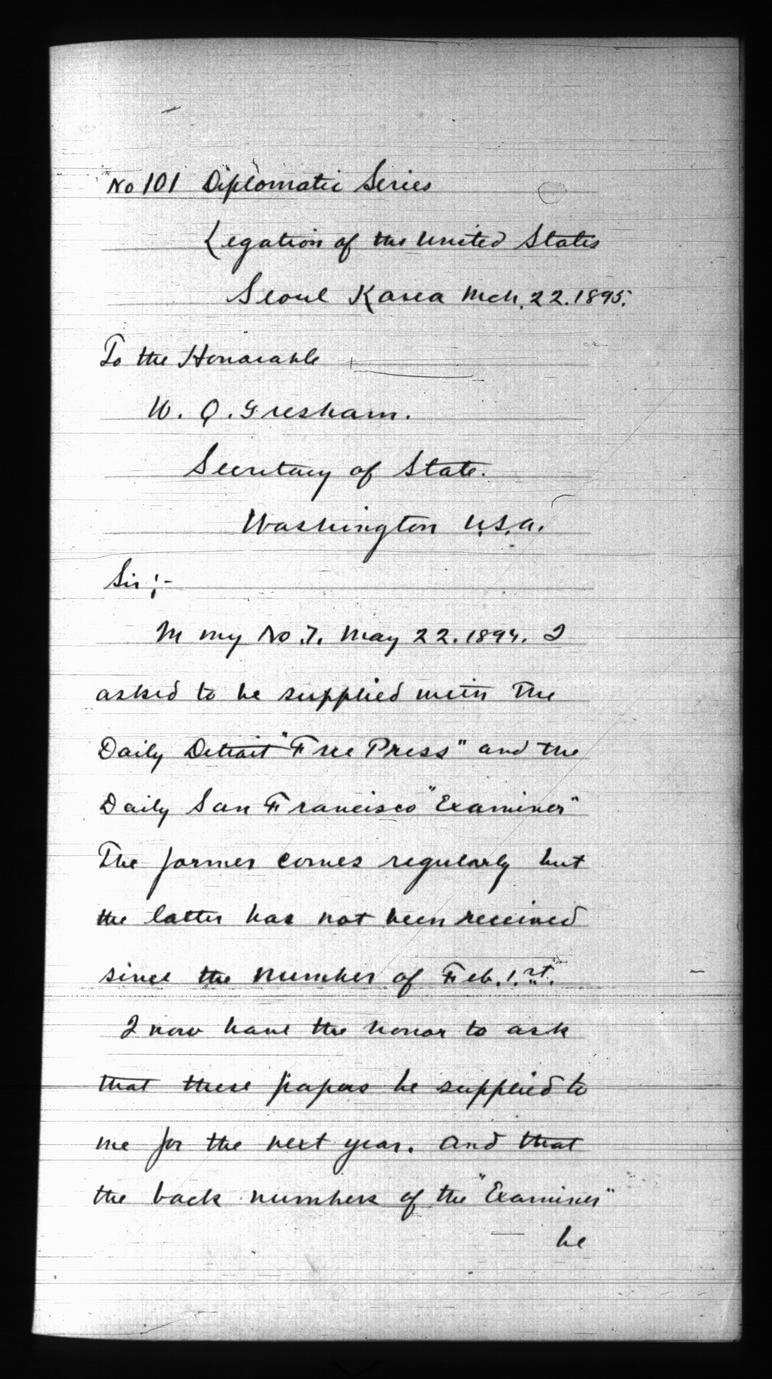 No 101 Diplomatic Series
Legation of the United States
Seoul Korea Mch. 22. 1895.
To the Honorable
W. Q. Gresham.
Secretary of State.
Washington U.S.A.
Sir;-
In my No. 7. May 22. 1894. I
asked to be supplied with the
Daily Detroit "Free Press" and the
Daily San Francisco "Examiner"
The former comes regularly but
the latter has not been received
since the number of Feb. 1.st.
I now have the honor to ask
that these papers be supplied to
me for the next year. and that
the back numbers of the "Examiner"
be